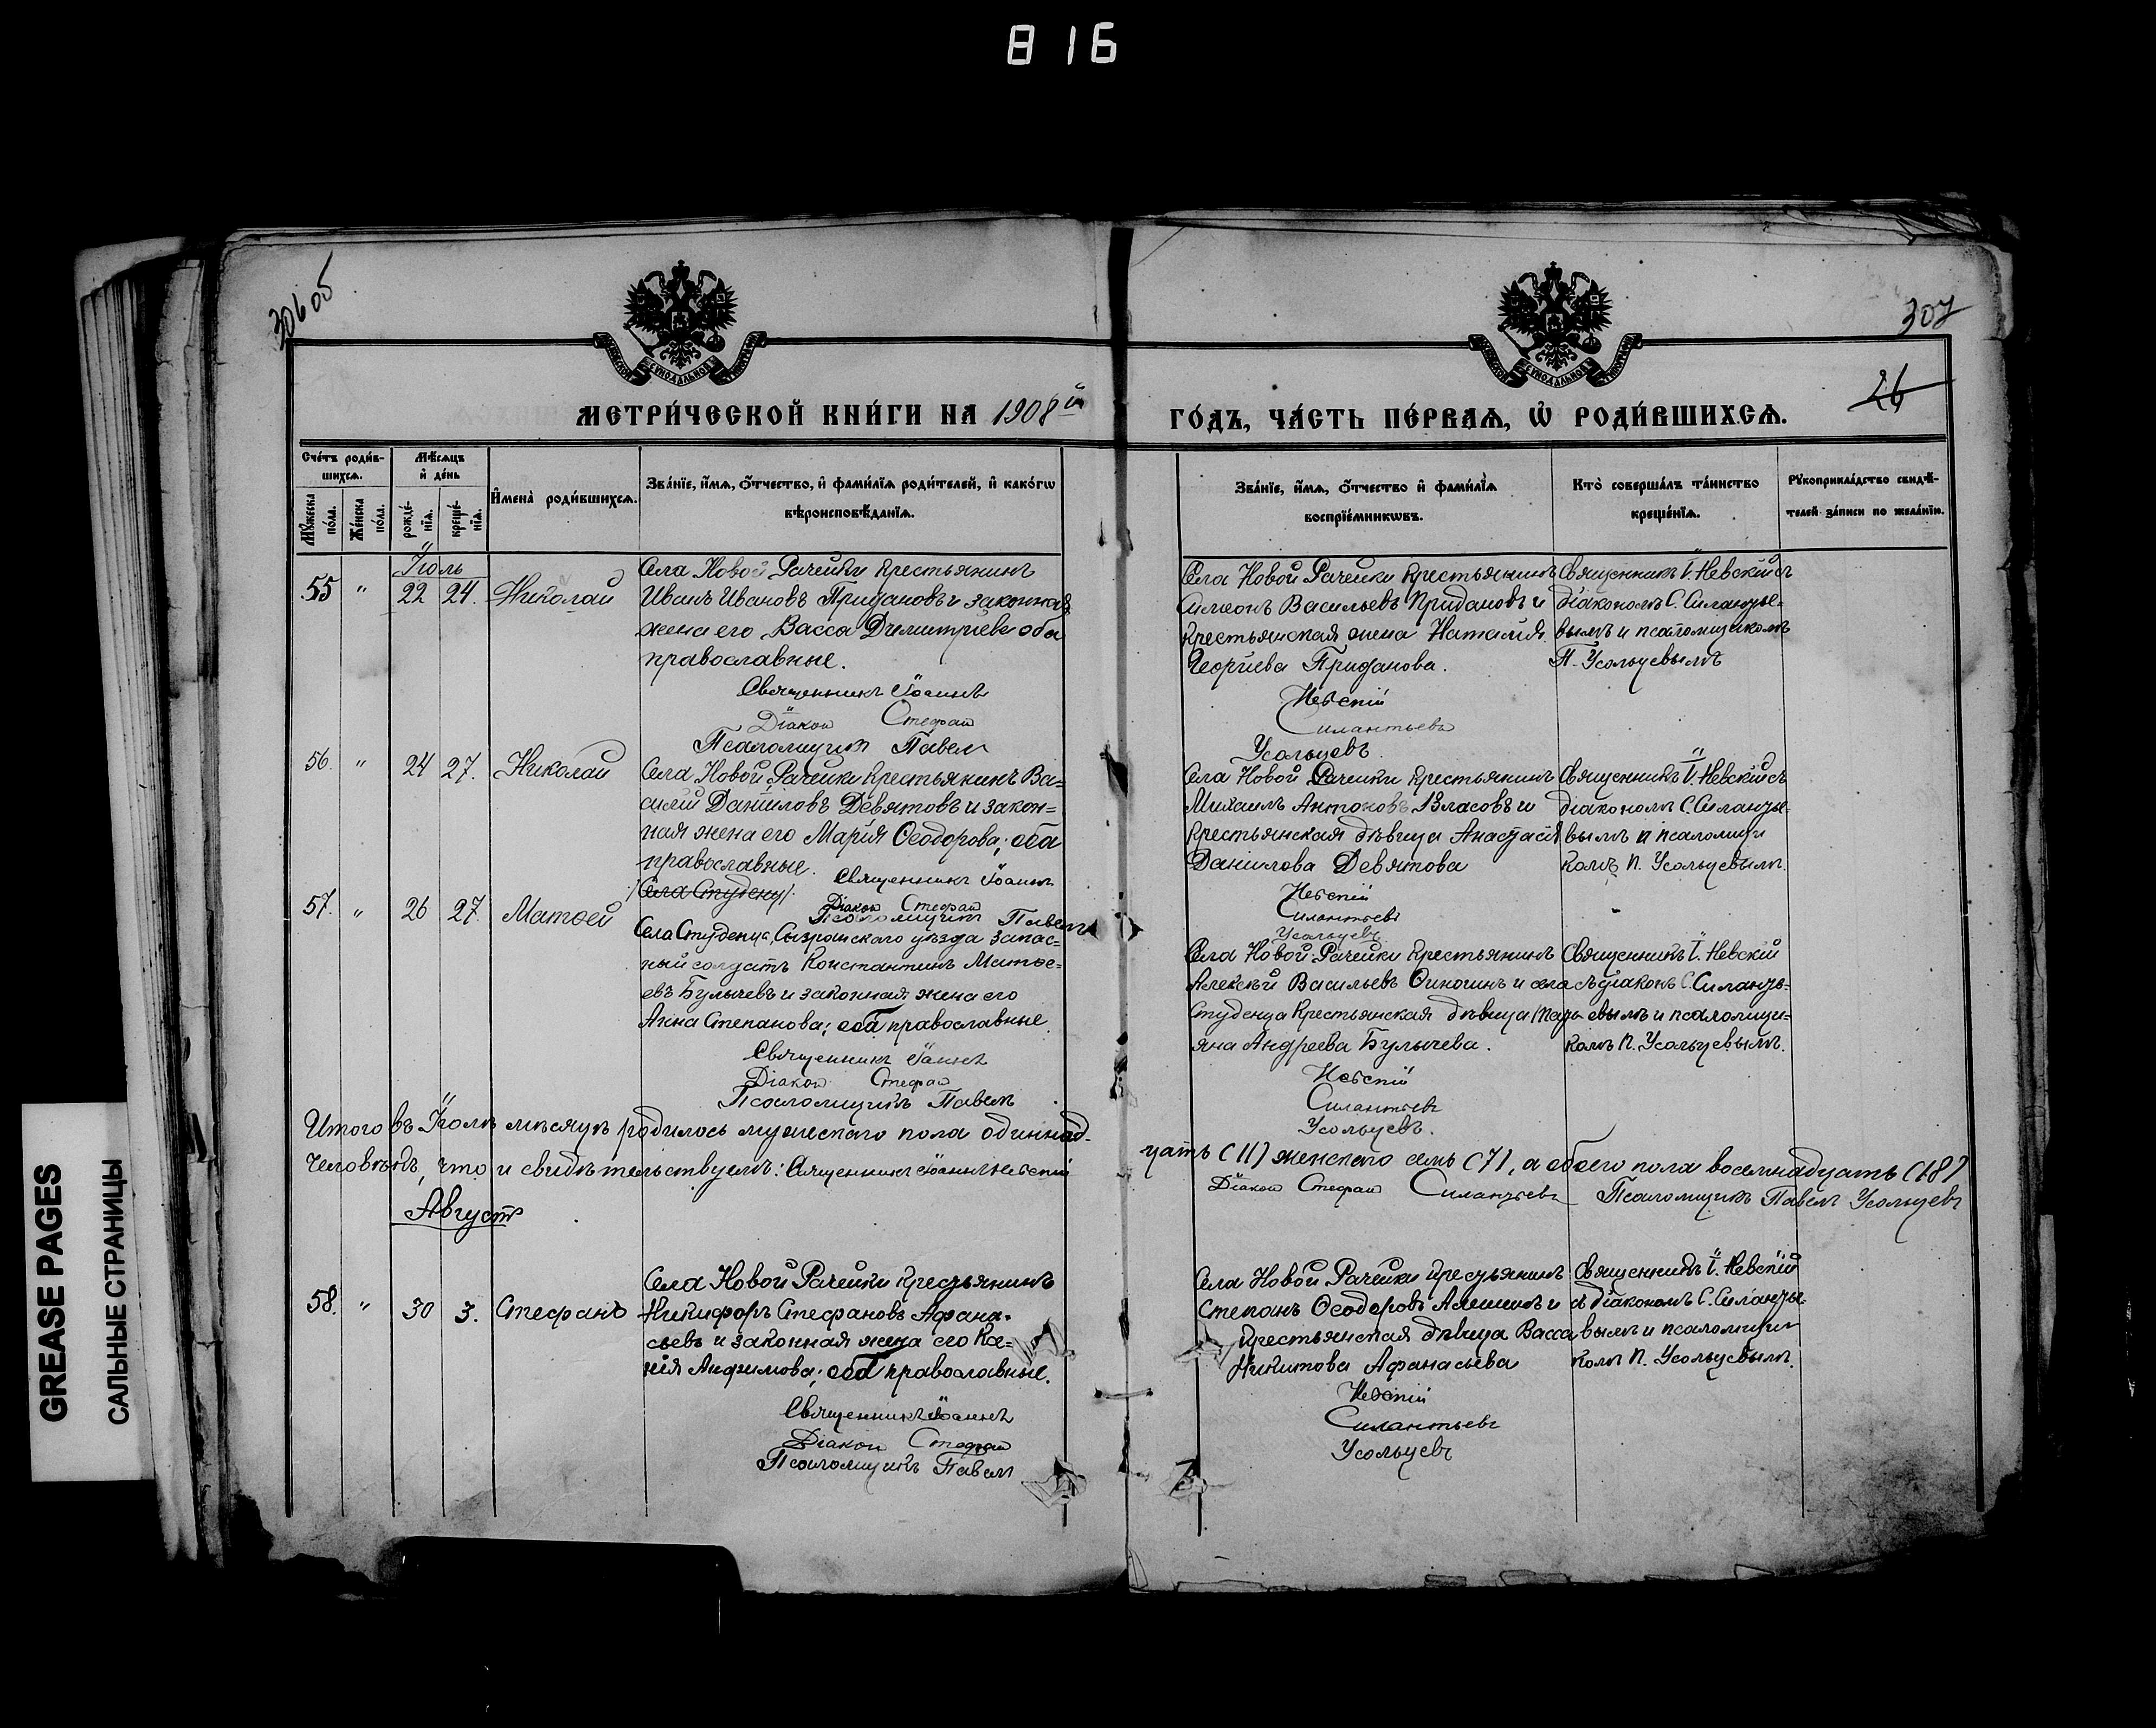 816
306 об
307
26
МЕТРИ́ЧЕСКОЙ КНИ́ГИ НА 1908й
ГО́ДЪ, ЧА́СТЬ ПЕ́РВАѦ, Ѡ҆ РОДИ́ВШИХСѦ.
Сче́тъ роди́в-
шихсѧ.
Мꙋ́жеска по́ла.
Же́нска по́ла.
Мѣ́сѧцъ
и҆ де́нь
рожде́-нїѧ.
креще́-нїѧ.
И҆мена̀ роди́вшихсѧ.
Зва́нїе, и҆́мѧ, ѻ҆́тчество, и҆ фами́лїѧ роди́телей, и҆ како́гѡ
вѣроисповѣ́данїѧ.
Зва́нїе, и҆́мѧ, ѻ҆́тчество и҆ фами́лїѧ
воспрїе́мникѡвъ.
Кто̀ соверша́лъ та́инство
креще́нїѧ.
Рꙋкоприкла́дство свидѣ́-
телей за́писи по жела́нїю.
Іюль
55 " 22 24. Николай
Села Новой Рачейки крестьянинъ
Иванъ Ивановъ Придановъ и законная
жена его Васса Димитріева оба
православные.
Священникъ Іоаннъ
Діакон Стефан
Псаломщикъ Павел
Села Новой Рачейки крестьянинъ
Симеонъ Васильевъ Придановъ и
крестьянская жена Наталія
Георгіева Приданова.
Невскій
Силантьевъ
Усольцевъ
Священникъ І. Невскій съ
діакономъ С. Силантье-
вымъ и псаломщикомъ
П. Усольцевымъ
56. " 24 27. Николай
Села Новой Рачейки крестьянинъ Ва-
силій Даніиловъ Девятовъ и закон-
ная жена его Марія Ѳеодорова; оба
православные.
Священникъ Іоаннъ
(Села Студенц)
Діакон Стефан
Псаломщикъ Павелъ
Села Новой Рачейки крестьянинъ
Михаилъ Антоновъ Власовъ и
крестьянская дѣвица Анастасія
Данилова Девятова
Невскій
Силантьевъ
Усольцевъ
Священникъ І. Невскій съ
діакономъ С. Силантье-
вымъ и псаломщи
комъ П. Усольцевымъ.
57. " 26 27. Матѳей
Села Студенца, Сызранскаго уѣзда запас-
ный солдатъ Константинъ Матѳе-
евъ Булычевъ и законная жена его
Анна Степанова; оба православные.
Священникъ Іоаннъ
Діакон Стефан
Псаломщикъ Павелъ
Села Новой Рачейки крестьянинъ
Алексѣй Васильевъ Финогинъ и села
Студенца крестьянская дѣвица Марь
яна Андреева Булычева.
Невскій
Силантьевъ
Усольцевъ.
Священникъ І. Невскій
съ діакономъ С. Силантье-
евымъ и псаломщи-
комъ П. Усольцевымъ.
Итого въ Іюлѣ мѣсяцѣ родилось мужескаго пола одиннад-
цать (11) женскаго семь (7), а обоего пола восемнадцать (18)
человѣкъ, что и свидѣтельствуемъ: Священникъ Іоаннъ Невскій
Діакон Стефан Силантьевъ Псаломщикъ Павелъ Усольцевъ
Августъ
58. " 30 3. Стефанъ
Села Новой Рачейки крестьянинъ
Никифоръ Стефановъ Афана-
сьевъ и законная жена его Ксе-
нія Анфимова; оба православные.
Священникъ Іоаннъ
Діакон Стефан
Псаломщикъ Павелъ
Села Новой Рачейки крестьянинъ
Степанъ Ѳеодоровъ Алешинъ и
крестьянская дѣвица Васса
Никитова Афанасьева
Невскій
Силантьевъ
Усольцевъ
Священникъ І. Невскій
съ діакономъ С. Силантье-
вымъ и псаломщи
комъ П. Усольцевымъ.
GREASE PAGES
САЛЬНЫЕ СТРАНИЦЫ